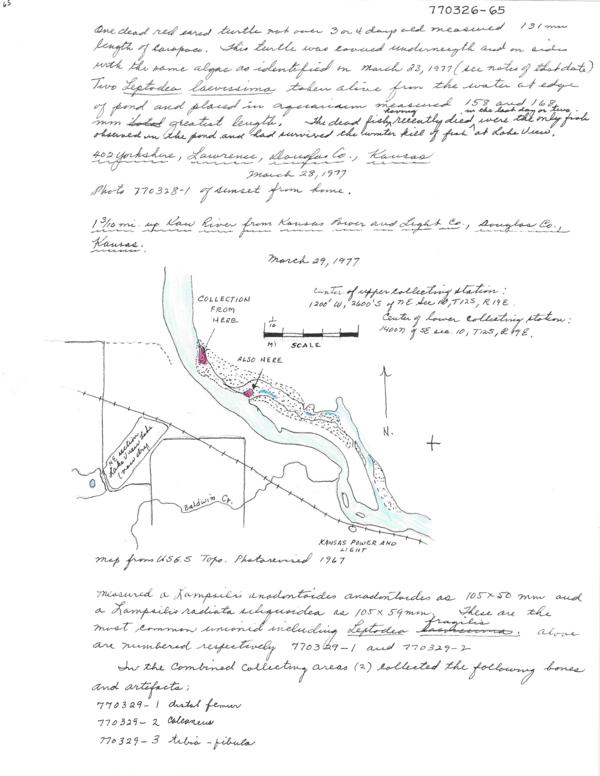 65
770326-65
One dead red eared turtle not over 3 or 4 days old measured 131 mm
length of carapace. This turtle was covered underneath and on sides
with the same algae as identified on March 23, 1977 (see notes of that date)
Two Leptodea laevissima taken alive from the water at edge
of pond and placed in aquarium measured 158 and 168
mm greatest length. The dead fish, having recently died in the last day or two, were the only fish
observed in the pond and had survived the winter kill of fish at Lake View.
402 Yorkshire, Lawrence, Douglas Co., Kansas
March 28, 1977
Photo 770328-1 of sunset from home.
1 3/10 mi. up Kaw River from Kansas Power and Light Co., Douglas Co.,
Kansas.
March 29, 1977
Center of upper collecting station:
1200' W, 2600' S of NE Sec 10, T12S, R19E.
Center of lower collecting station:
1400' N of SE sec. 10, T12S, R19E.
COLLECTION
FROM
HERE
1/10
MI SCALE
ALSO HERE
N.
NE section
Lake View Lake
(now dry)
Baldwin Cr.
KANSAS POWER AND
LIGHT
Map from USGS Topo. Photorevised 1967
Measured a Lampsilis anodontoides anodontoides as 105 x 50 mm and
a Lampsilis radiata siliquoidea as 105 x 59 mm. These are the
most common unionid including Leptodea fragilis. Above
are numbered respectively 770329-1 and 770329-2
In the combined collecting areas (2) collected the following bones
and artifacts:
770329-1 distal femur
770329-2 calcaneus
770329-3 tibia-fibula